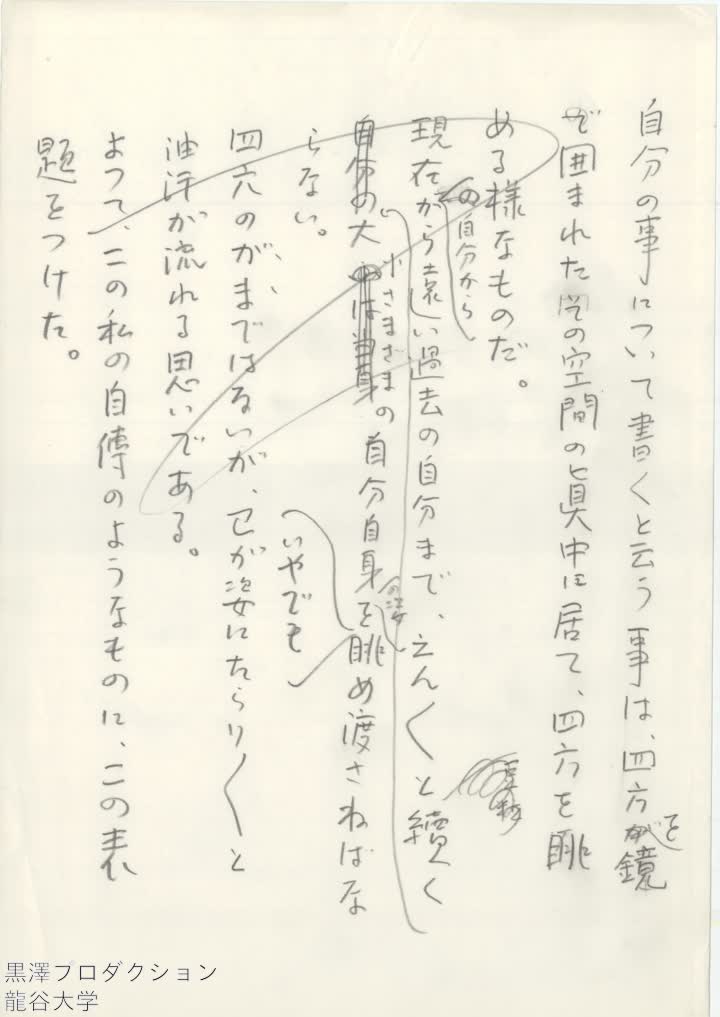 自分の事について書くと云う事は、四方を鏡
で囲まれたその空間の眞中に居て、四方を眺
める様なものだ。
の自分から
現在から遠い過去の自分まで、えん〱と續く
の姿
小さまざまの自分自身を眺め渡さねばな
自分の大
いやでも
らない。
四六のがまではないが、己が姿にたらり〱と
油汗が流れる思いである。
よって、この私の自傳のようなものに、この表
題をつけた。
黒澤プロダクション
龍谷大学